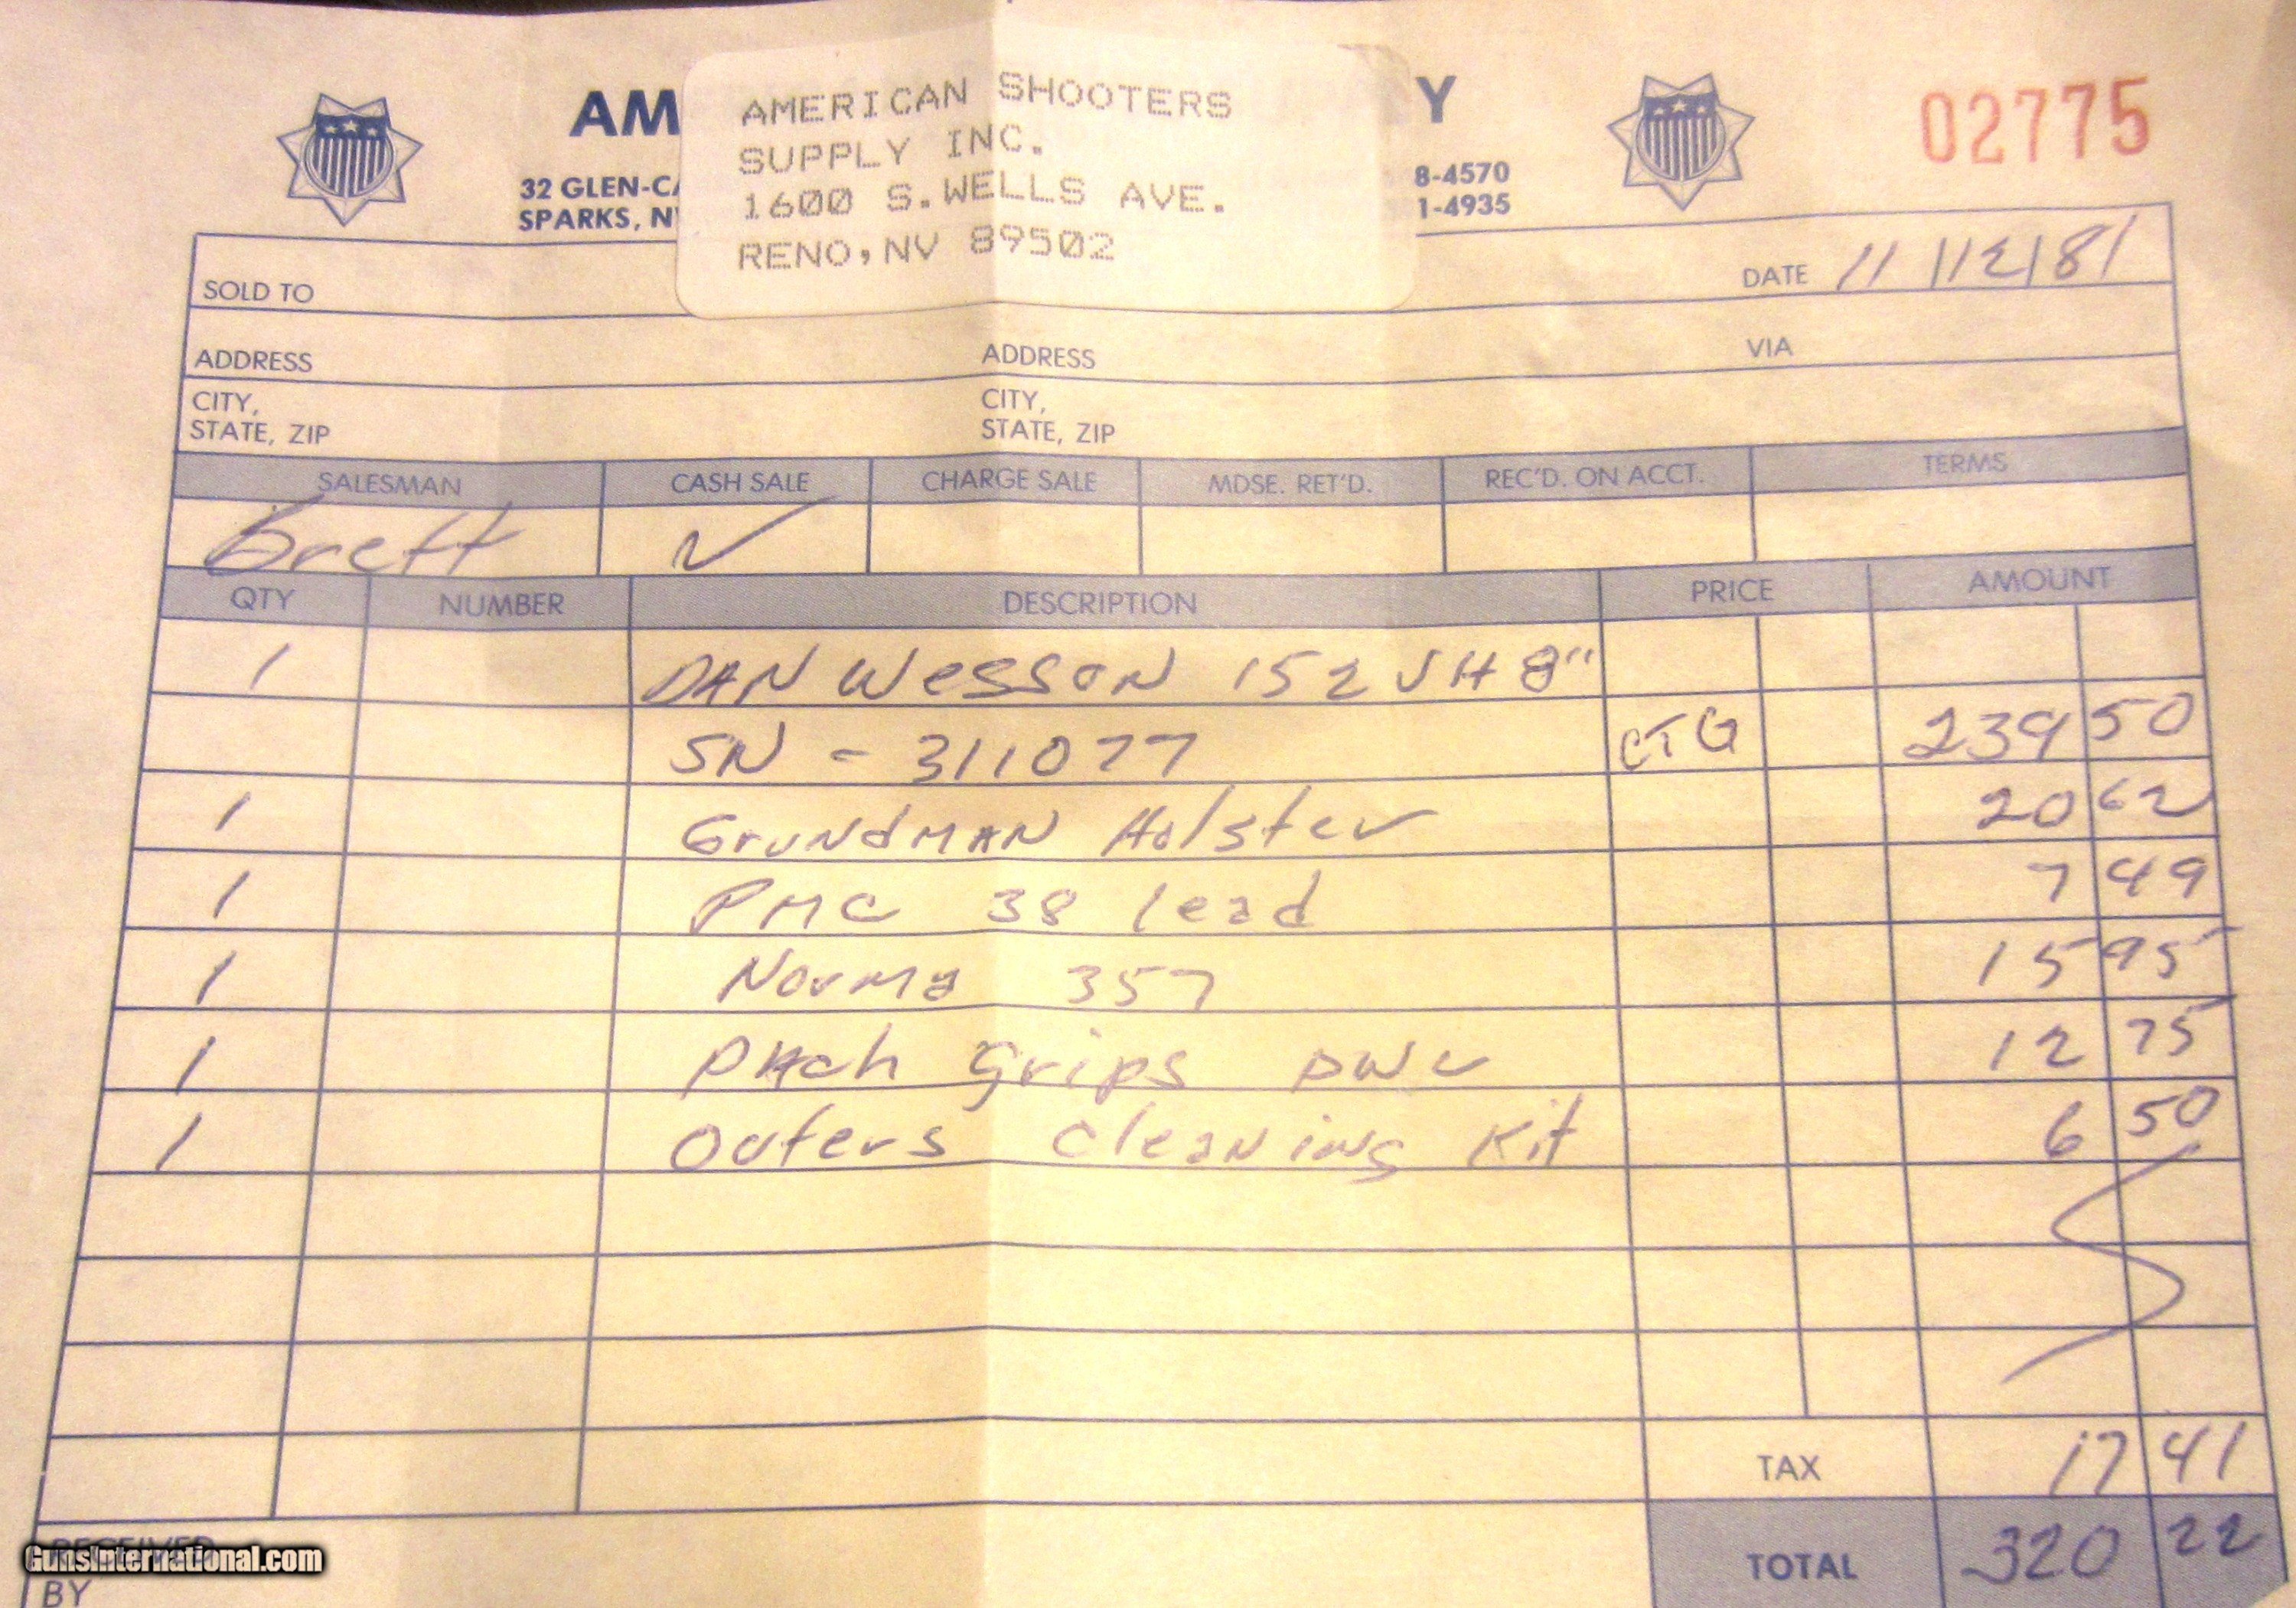 AM
Y
02775
AMERICAN SHOOTERS
SUPPLY INC.
1600 S.WELLS AVE.
RENO,NV 89502
32 GLEN-CA
SPARKS, NV
8-4570
1-4935
SOLD TO
DATE 11/12/81
ADDRESS ADDRESS VIA
CITY, CITY,
STATE, ZIP STATE, ZIP
SALESMAN CASH SALE CHARGE SALE MDSE. RET'D. REC'D. ON ACCT. TERMS
Brett ✓
QTY NUMBER DESCRIPTION PRICE AMOUNT
1 DAN Wesson 152 VH 8"
SN - 311077 CTG 239 50
1 Grundman Holster 20 62
1 PMC 38 lead 7 49
1 Norma 357 15 95
1 PAch Grips 12 75
1 Outers Cleaning Kit 6 50
TAX 17 41
TOTAL 320 22
RECEIVED
BY
GunsInternational.com